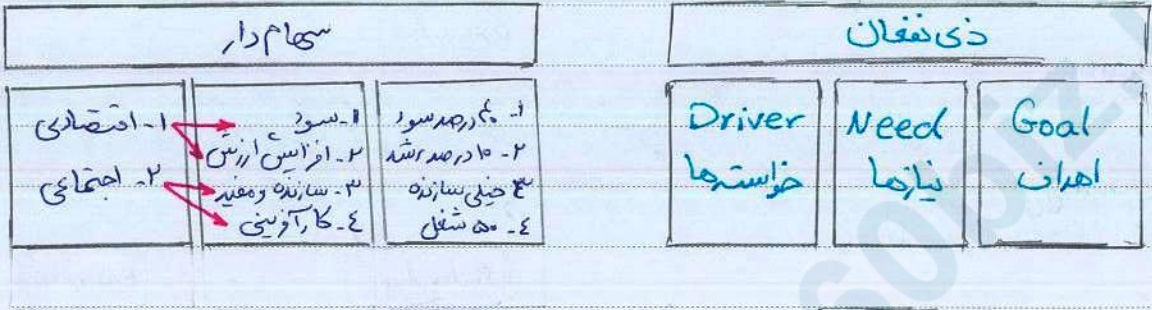 ذی نفعان
Goal
اهداف
Need
نیازها
Driver
خواسته‌ها
سهام دار
۲- ۱۰ درصد رشد
۳- خیلی سازنده
۴- ۵۰ شغل
۱- سود
۲- افزایش ارزش
۳- سازنده و مفید
۴- کارآفرینی
۱- اقتصادی
۲- اجتماعی